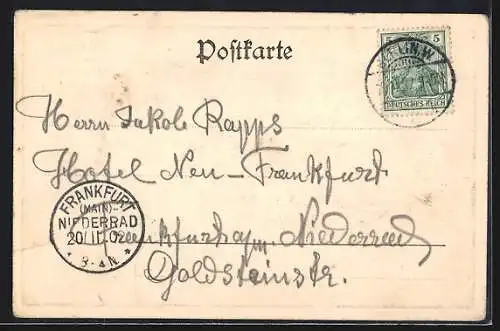 Postkarte
5 5
DEUTSCHES REICH
BERLIN.W.
Herrn Jakob Rapps
Hotel Neu-Frankfurt
Frankfurt a/m Niederrad
Goldsteinstr.
FRANKFURT
(MAIN)-
NIEDERRAD
20/11.02
3-4N.